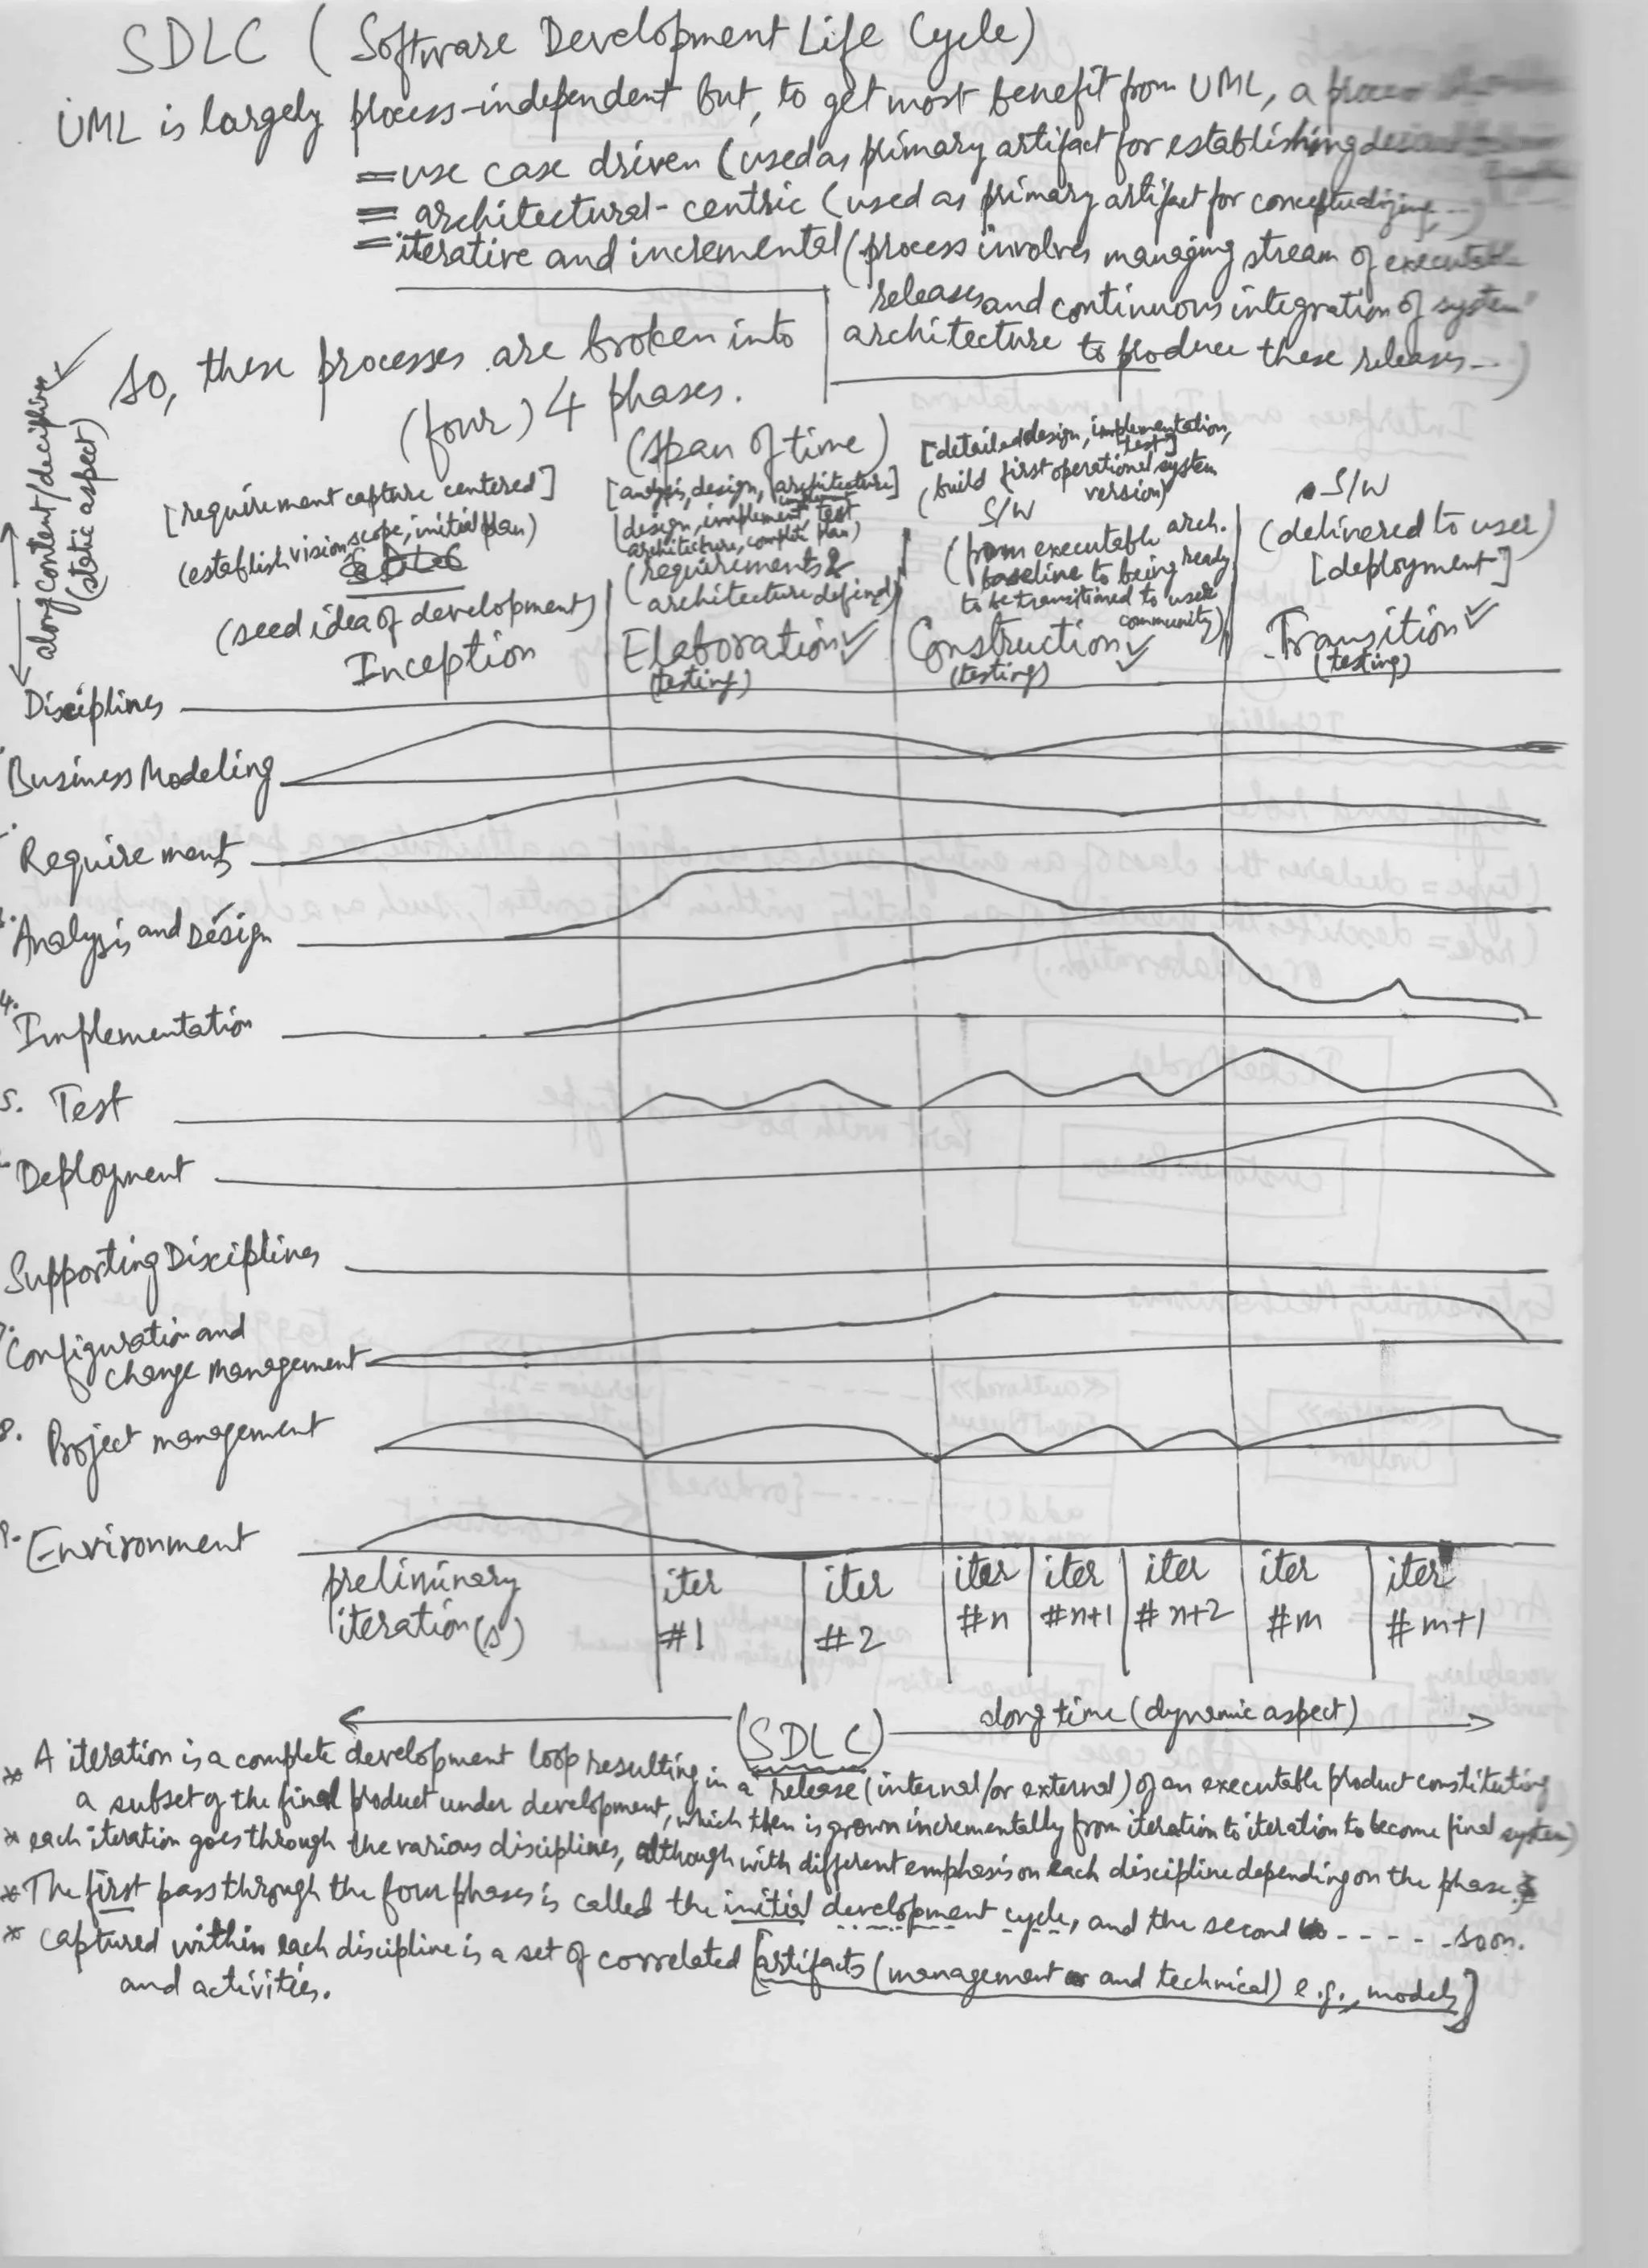 SDLC ( Software Development Life Cycle)
UML is largely process-independent but, to get most benefit from UML, a process
= use case driven (used as primary artifact for establishing
= architectural-centric (used as primary artifact for conceptualizing,...)
= iterative and incremental (process involves managing stream of executable
releases and continuous integration of system
architecture to produce these releases...)
So, these processes are broken into
(four) 4 phases.
(span of time)
along content/discipline
(static aspect)
[requirement capture centered]
(establish vision, scope, initial plan)
(seed idea of development)
Inception
[analysis, design, architecture]
(design, implement, test
architecture, complete plan)
(requirements &
architecture defined)
Elaboration
(testing)
[detailed design, implementation,
test]
(build first operational system
version)
S/W
(from executable arch.
baseline to being ready
to be transitioned to user
community)
Construction
(testing)
S/W
(delivered to user)
[deployment]
Transition
(testing)
Disciplines
Business Modeling
Requirements
Analysis and Design
4. Implementation
5. Test
Deployment
Supporting Disciplines
7. Configuration and
change management
8. Project management
9. Environment
preliminary
iteration(s)
iter
#1
iter
#2
iter
#n
iter
#n+1
iter
#n+2
iter
#m
iter
#m+1
(SDLC) along time (dynamic aspect)
* A iteration is a complete development loop resulting in a release (internal/or external) of an executable product constituting
a subset of the final product under development, which then is grown incrementally from iteration to iteration to become final system)
* each iteration goes through the various disciplines, although with different emphasis on each discipline depending on the phase.
* The first pass through the four phases is called the initial development cycle, and the second - - - - - soon.
* captured within each discipline is a set of correlated [artifacts (management and technical) e.g., models]
and activities.